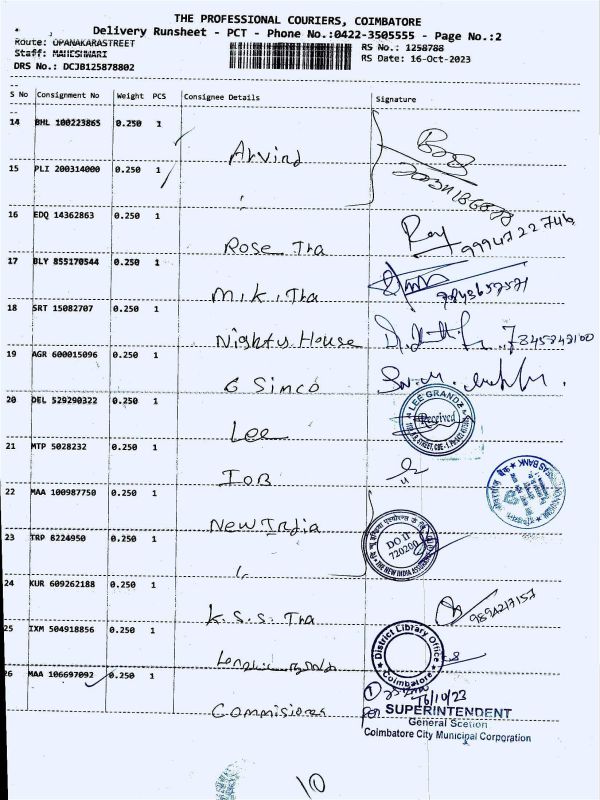 THE PROFESSIONAL COURIERS, COIMBATORE
Delivery Runsheet - PCT - Phone No.:0422-3505555 - Page No.:2
Route: OPANAKARASTREET
RS No.: 1258788
Staff: MAHESHWARI
RS Date: 16-Oct-2023
DRS No.: DCJB125878802
S No Consignment No Weight PCS Consignee Details Signature
14 BHL 100223865 0.250 1
Arvind
15 PLI 200314000 0.250 1
16 EDQ 14362863 0.250 1
Rose Tha 9994722746
17 BLY 855170544 0.250 1
M.K. Tha 7845657571
18 SRT 15082707 0.250 1
Nighty House 7845842100
19 AGR 600015096 0.250 1
G Simco
20 DEL 529290322 0.250 1
LEE GRANDZ
Received
Lee
21 MTP 5028232 0.250 1
IOB
22 MAA 100987750 0.250 1
New India
DO II
720200
THE NEW INDIA
23 TRP 8224950 0.250 1
24 KUR 609262188 0.250 1
K.S.S. Tha
25 IXM 504918856 0.250 1
District Library Office
Coimbatore
26 MAA 106697092 0.250 1
16/10/23
Commisioner
for SUPERINTENDENT
General Section
Coimbatore City Municipal Corporation
10